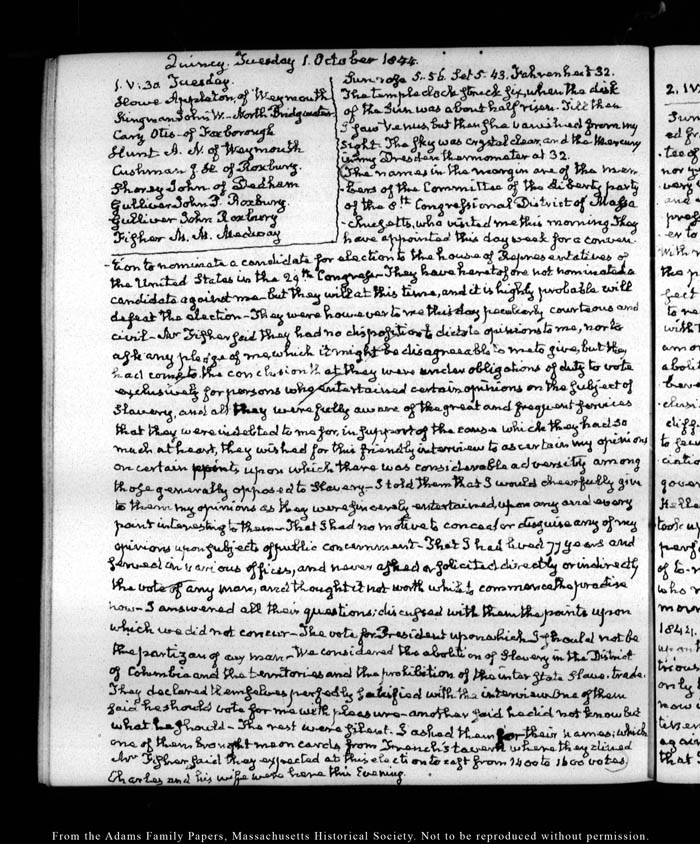 Quincy. Tuesday 1. October 1844.
1. V:30 Tuesday.
Howe Appleton, of Weymouth
Kingman John W. - North Bridgewater
Cary Otis - of Foxborough
Hunt A. N. of Weymouth
Cushman of Roxbury.
Shorey John of Dedham
Gulliver John P. Roxbury.
Gulliver John Roxbury
Fisher M. M. Medway
Sun rose 5-56. Set 5.43. Fahrenheit 32.
The temple clock struck six, when the disk
of the Sun was about half risen. Till then
I saw Venus, but then she vanished from my
sight. The sky was crystal clear, and the mercury
in my Dresden thermometer at 32.
The names in the margin are of the mem-
-bers of the Committee of the Liberty party
of the 8th Congressional District of Massa
-chusetts, who visited me this morning. They
have appointed this day week for a conven-
-tion to nominate a candidate for election to the house of Representatives of
the United States in the 29th Congress - They have heretofore not nominated a
candidate against me - but they will at this time, and it is highly probable will
defeat the election - They were however to me this day peculiarly courteous and
civil - Mr Fisher said they had no disposition to dictate opinions to me, nor to
ask any pledge of me, which it might be disagreeable to me to give, but they
had come to the conclusion that they were under obligations of duty to vote
exclusively for persons who entertained certain opinions on the subject of
Slavery, and all they were fully aware of the great and frequent services
that they were indebted to me for, in support of the cause which they had so
much at heart, they wished for this friendly interview to ascertain my opinions
on certain points upon which there was considerable adversity among
those generally opposed to Slavery - I told them that I would cheerfully give
to them my opinions as they were sincerely entertained, upon any and every
point interesting to them - That I had no motive to conceal or disguise any of my
opinions upon subjects of public concernment - That I had lived 77 years and
served in various offices, and never asked or solicited directly or indirectly
the vote of any man, and thought it not worth while to commence the practise
now - I answered all their questions; discussed with them the points upon
which we did not concur - The vote for President upon which I should not be
the partizan of any man - We considered the abolition of Slavery in the District
of Columbia and the territories and the prohibition of the inter State Slave-trade.
They declared themselves perfectly satisfied with the interview. One of them
said he should vote for me with pleasure - another said he did not know but
what he should - The rest were silent. I asked them for their names; which
one of them brought me on cards from French's tavern where they dined
Mr Fisher said they expected at this election to cast from 1400 to 1600 votes
Charles and his wife were here this Evening.
2. IV
Sun
ed fr
tee of
nor
very
and
prof
er to
with
the p
fect
to re
with
amo
aboli
have
clusi
diff
to
ciatio
gover
Helle
took up
perf
of to-
who
mor
1842.
upon
trious
only
now
tisse
again
that
From the Adams Family Papers, Massachusetts Historical Society. Not to be reproduced without permission.